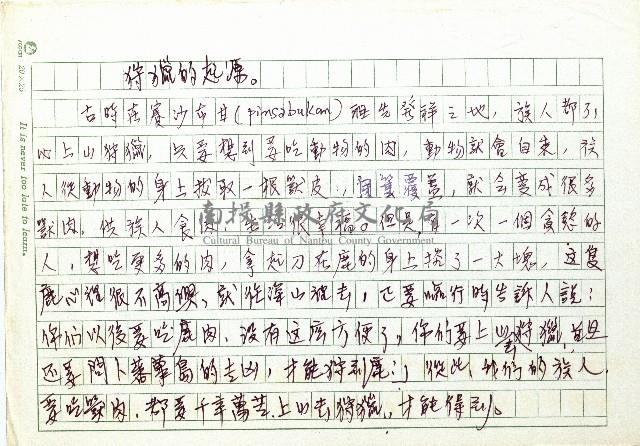 狩獵的起源。
古時在賽沙布甘(pinsabukan)祖先發祥之地，族人都不
必上山狩獵，只要想到要吃動物的肉，動物就會自來，族
人從動物的身上拔取一根獸皮，用簍覆蓋，就会变成很多
獸肉，供族人食肉，生活很幸福。但是有一次一個貪愁的
人，想吃更多的肉，拿起刀在鹿的身上搭了一大塊，这隻
鹿心裡很不高興，就往深山裡去，还要臨行時告訴人說：
你們以後要吃鹿肉，沒有这麼方便了，你們要上山去狩獵，並且
还要問卜蕃蓽鳥的吉凶，才能狩到鹿；」從此，他們的族人
要吃獸肉，都要千辛萬苦上山去狩獵，才能得到。
南投縣政府文化局
Cultural Bureau of Nantou County Government
It is never too late to learn.
20×25